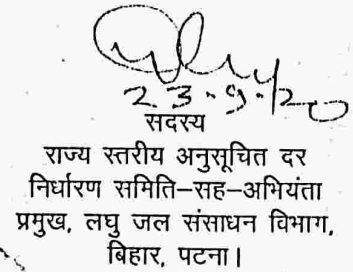 23.9.20
सदस्य
राज्य स्तरीय अनुसूचित दर
निर्धारण समिति–सह–अभियंता
प्रमुख, लघु जल संसाधन विभाग,
बिहार, पटना।